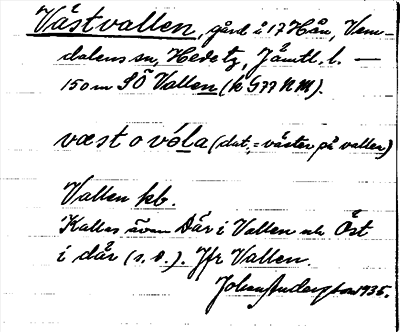 Västvallen, gård i 17 Hån, Vem-
dalens sn, Hede tg, Jämtl. l. —
150 m SÖ Vallen (k G77 NM).
væst o vóla (dat., = väster på vallen)
Vallen kb.
Kallas även Där i Vallen och Öst
i där (s. d.). Jfr Vallen.
Johan Anderzson 1935.